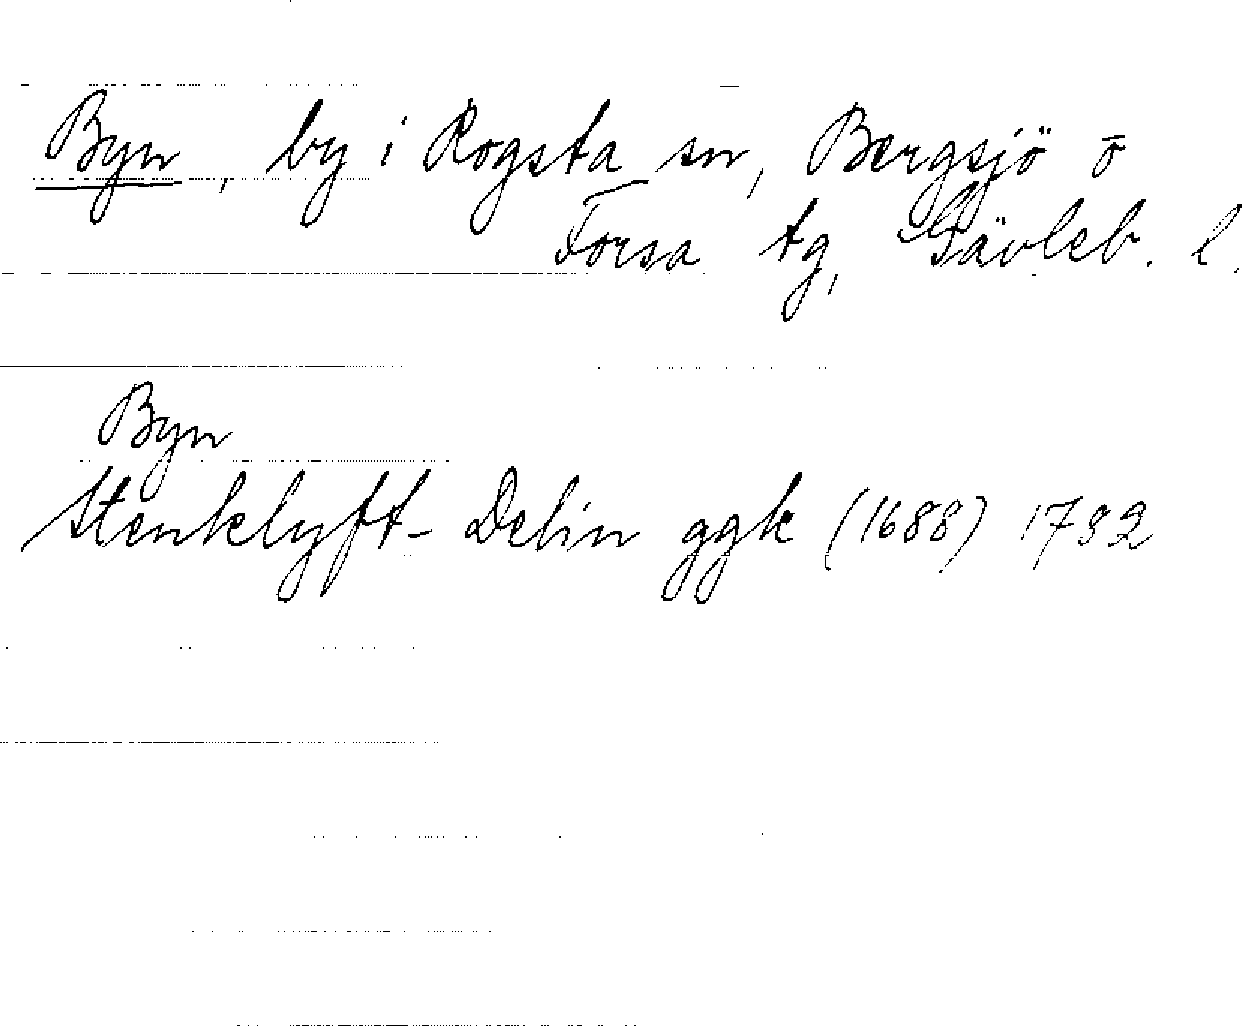 Byn, by i Rogsta sn, Bergsjö o
Forsa tg, Gävleb. l.
Byn
Stenklyft- Delin ggk (1688) 1792